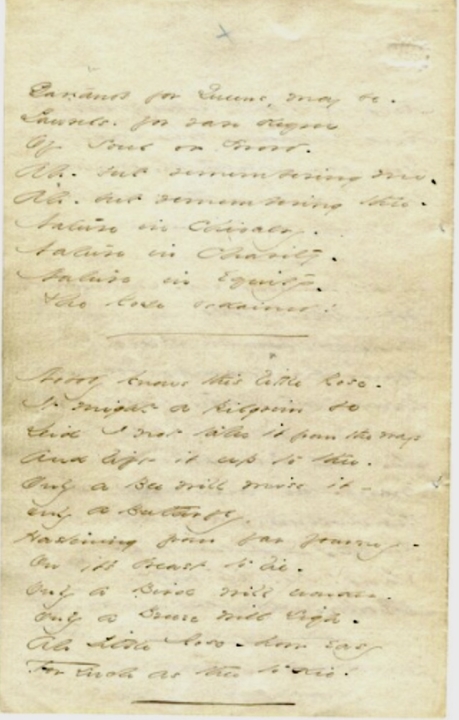 Garlands for Queens, may be -
Laurels - for rare degree
Of Soul or Sword -
Ah - but remembering me -
Ah - but remembering thee -
Nature in Chivalry -
Nature in Charity -
Nature in Equity -
The Rose ordained!
Nobody knows this little Rose -
It might a Pilgrim be
Did I not take it from the ways
And lift it up to thee -
Only a Bee will miss it -
Only a Butterfly,
Hastening from far journey -
On its breast to lie -
Only a Bird will wonder -
Only a Breeze will sigh -
Ah Little Rose - how easy
For such as thee to die!